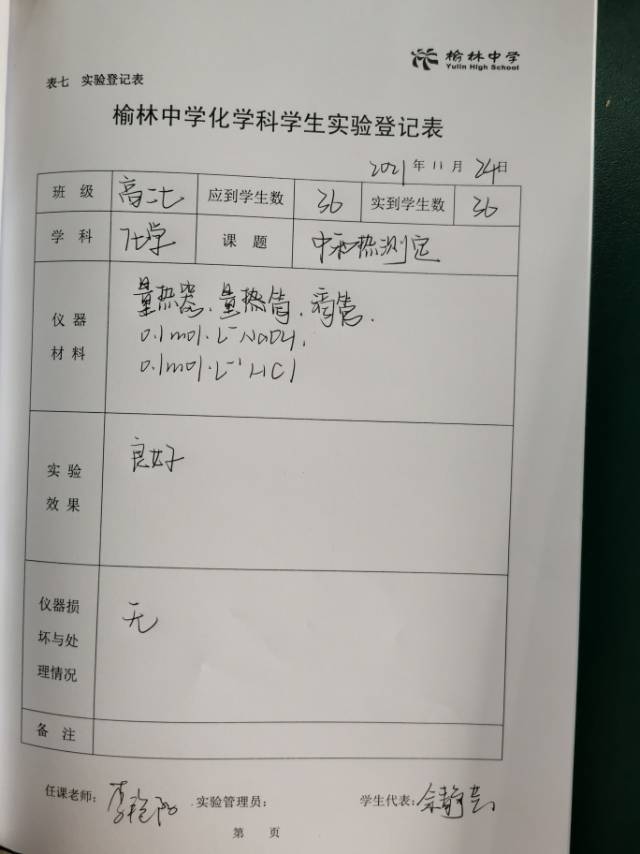 榆林中学
Yulin High School
表七 实验登记表
榆林中学化学科学生实验登记表
2021年11月24日
班级 高二七 应到学生数 36 实到学生数 36
学科 化学 课题 中和热测定
仪器材料
量热器、量热筒、滴管、
0.1mol·L⁻NaOH,
0.1mol·L⁻¹ HCl
实验效果
良好
仪器损坏与处理情况
无
备注
任课老师: 李艳阳 实验管理员: 学生代表:
第 页